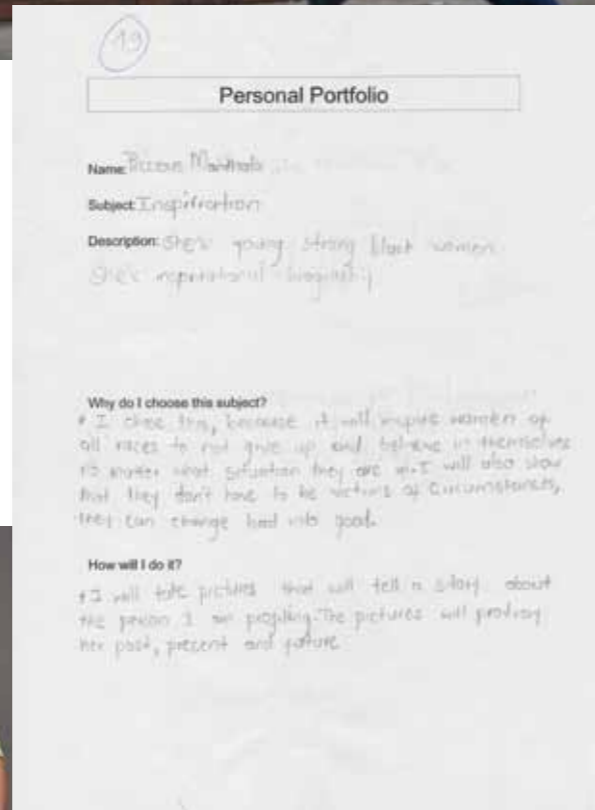 19
Personal Portfolio
Name:
Subject: Inspiration
Description: She's young strong black women
She's inspirational
Why do I choose this subject?
* I chose this, because it will inspire women of
all races to not give up and believe in themselves
no matter what situation they are in. I will also show
that they don't have to be victims of circumstances,
they can change bad into good.
How will I do it?
* I will take pictures that will tell a story about
the person I am profiling. The pictures will
her past, present and future